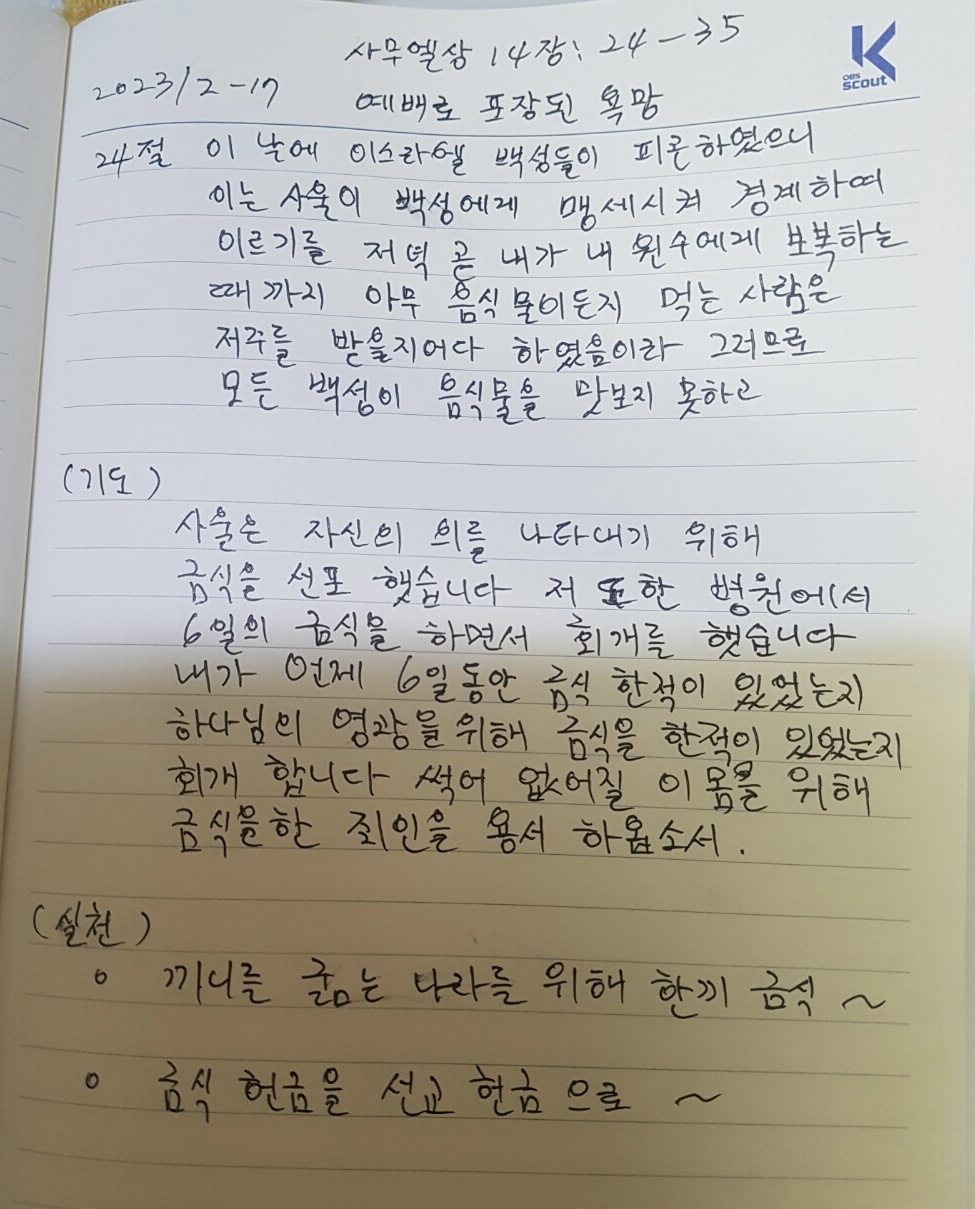 사무엘상 14장: 24-35
K
OBS
scout
2023/2-17
예배로 포장된 욕망
24절 이 날에 이스라엘 백성들이 피곤하였으니
이는 사울이 백성에게 맹세시켜 경계하여
이르기를 저녁 곧 내가 내 원수에게 보복하는
때까지 아무 음식물이든지 먹는 사람은
저주를 받을지어다 하였음이라 그러므로
모든 백성이 음식물을 맛보지 못하고
(기도)
사울은 자신의 의를 나타내기 위해
금식을 선포 했습니다 저 또한 병원에서
6일의 금식을 하면서 회개를 했습니다
내가 언제 6일동안 금식 한적이 있었는지
하나님의 영광을 위해 금식을 한적이 있었는지
회개 합니다 썩어 없어질 이 몸을 위해
금식을한 죄인을 용서 하옵소서.
(실천)
o 끼니를 굶는 나라를 위해 한끼 금식 ~
o 금식 헌금을 선교 헌금 으로 ~